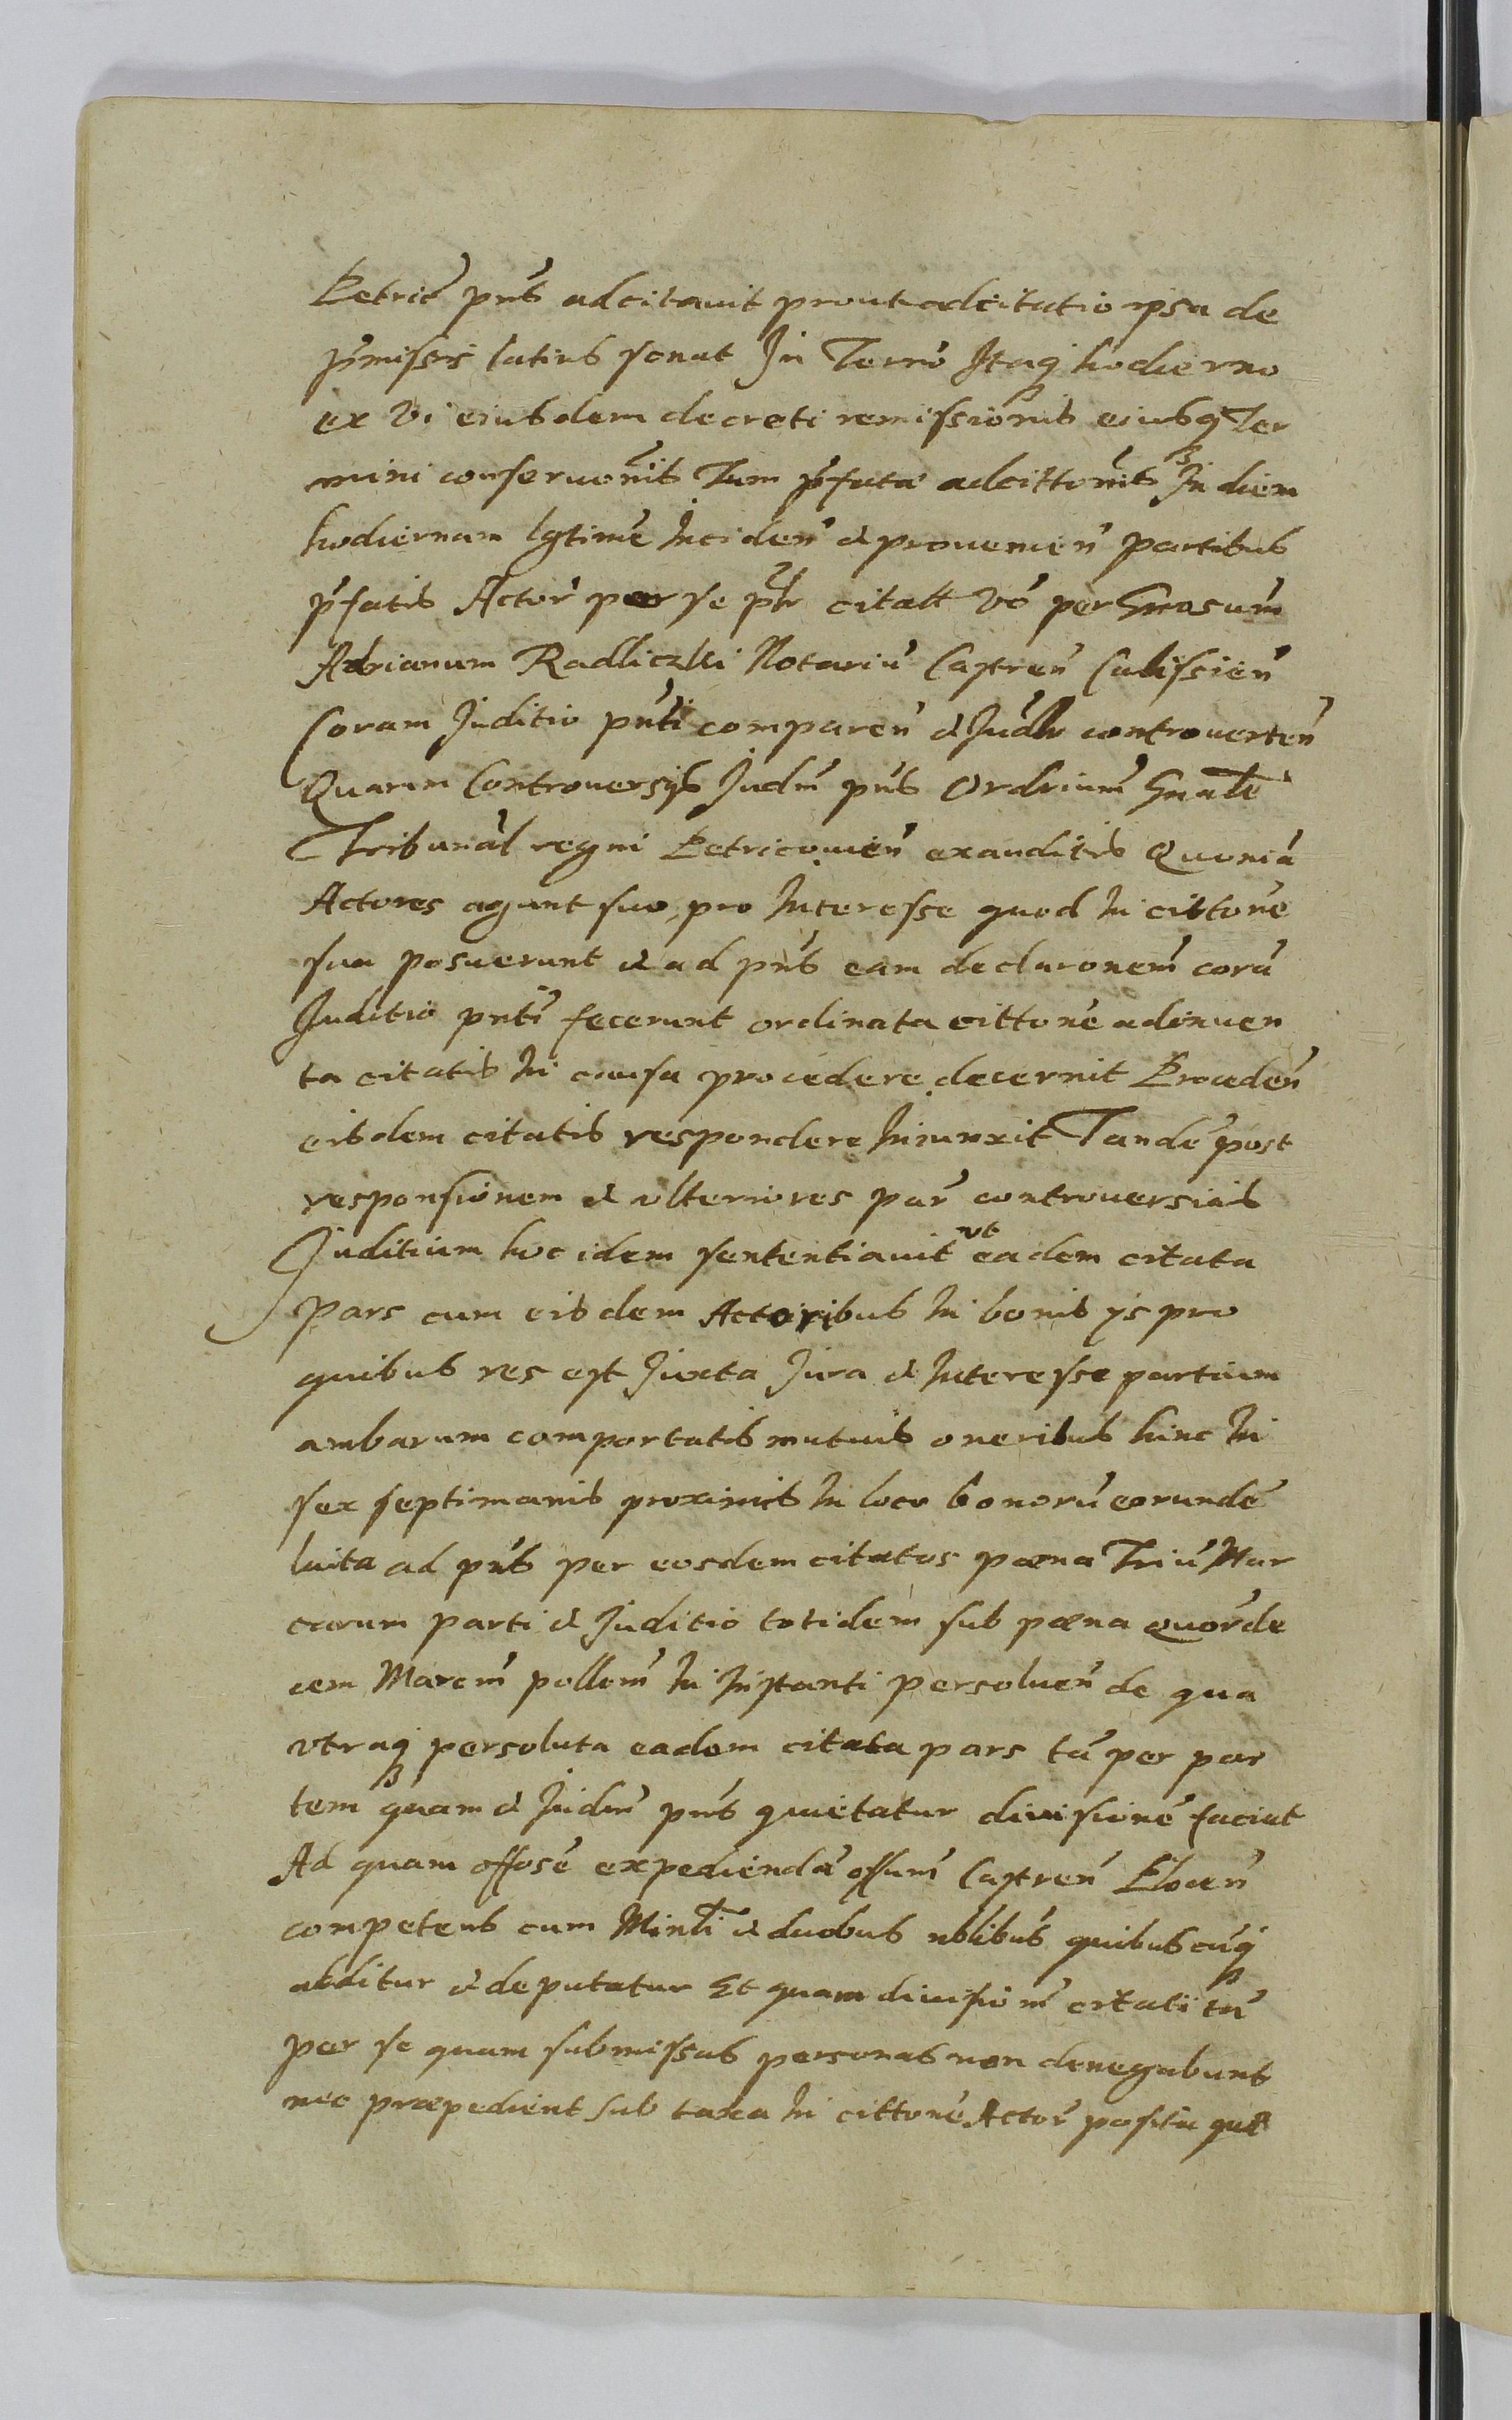 Petric̃ pns̃ adcitavit prout adcitatio ipsa de
p̃missis latius sonat In Termõ Itaq hodierno
ex Vi eiusdem decreti remissionis eiusq Ter
mini conseruonĩs Tum p̃fatæ adcittonĩs In diem
hodiernam lgtimẽ Inciden̄ & prouenien̄ partibus
p̃fatis Actor̃ per se citatt Võ per Gnosum̃
Adrianum Radliczki Notariũ Castren̄ Calissien̄
Coram Juditio pntĩ comparen̄ & Judlr controuerten̄
Quarum Controuersijs Judm̃ pns̃ Ordrium̃ Gnale
Tribunal̃ regni Petricouien̄ exauditis Quoniã
Actores agunt suo pro Interesse quod In cittonẽ
sua posuerunt & ad pns̃ eam declaronem̃ corã
Juditio pntĩ fecerunt ordinata cittonẽ adinuen
ta citatis In causa procedere decernit Proceden̄
eisdem citatis respondere Iniunxit Tandẽ post
responsionem & vlteriores par̃ controuersias
Juditium hoc idem sententiauit ut eadem citata
Pars cum eisdem Actoribus In bonis ijs pro
quibus res est Juxta Jura & Interesse partium
ambarum comportatis mutuis oneribus hinc In
sex septimanis proximis In loco bonorũ eorundẽ
luita ad pns̃ per eosdem citatos pœna Triũ Mar
carum parti & Juditio totidem sub pœna quorde
cem Marcm̃ pollem̃ In Instanti persoluen̄ de qua
vtraq persoluta eadem citata pars tã per par
tem quam & Judm̃ pns̃ quietatur diuisionẽ faciat
Ad quam offosẽ expediendã offum̃ Castren̄ Plocen̄
competens cum Minlĩ & duobus nblibus̃ quibuscũq
additur & deputatur Et quam diuisionm̃ citati tã
per se quam submissas personas non denegabunt
nec præpedient sub taxa In cittonẽ Actor̃ posita quæ